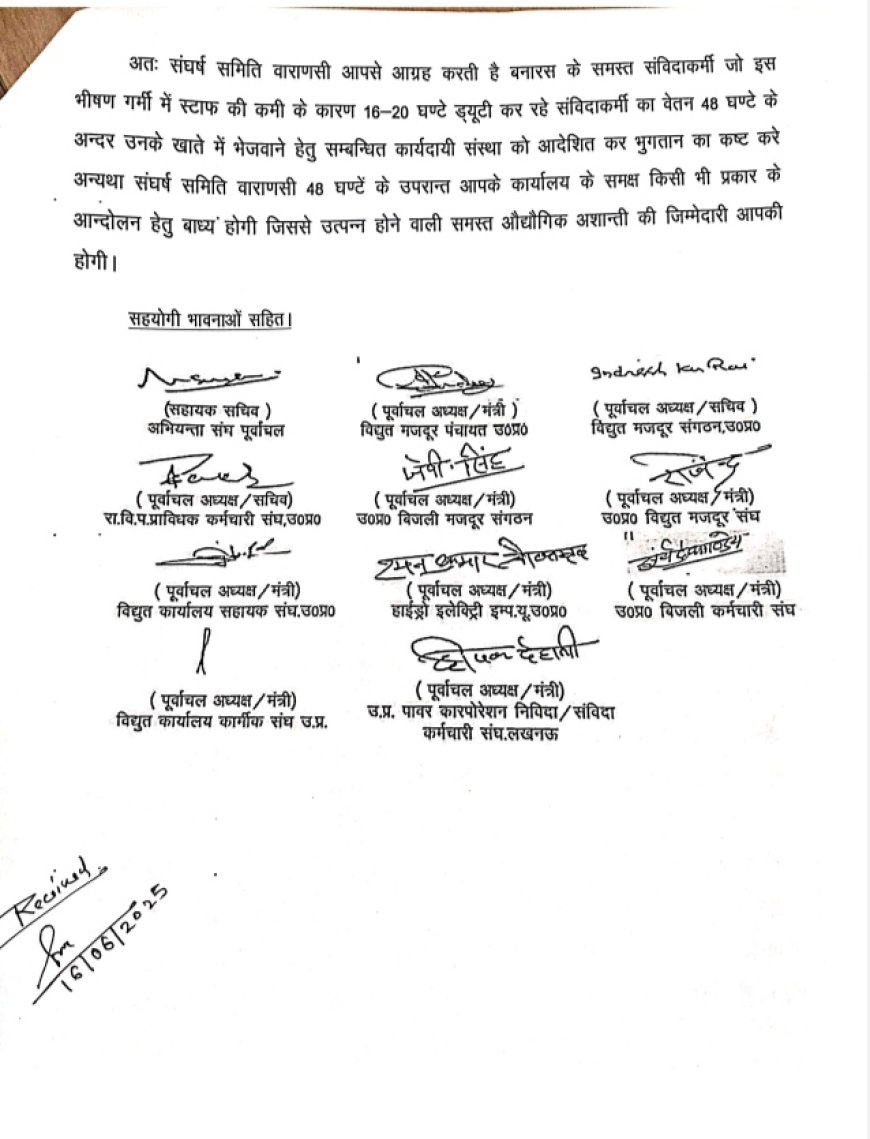 अतः संघर्ष समिति वाराणसी आपसे आग्रह करती है बनारस के समस्त संविदाकर्मी जो इस
भीषण गर्मी में स्टाफ की कमी के कारण 16–20 घण्टे ड्यूटी कर रहे संविदाकर्मी का वेतन 48 घण्टे के
अन्दर उनके खाते में भेजवाने हेतु सम्बन्धित कार्यदायी संस्था को आदेशित कर भुगतान का कष्ट करे
अन्यथा संघर्ष समिति वाराणसी 48 घण्टें के उपरान्त आपके कार्यालय के समक्ष किसी भी प्रकार के
आन्दोलन हेतु बाध्य होगी जिससे उत्पन्न होने वाली समस्त औद्यौगिक अशान्ती की जिम्मेदारी आपकी
होगी।
सहयोगी भावनाओं सहित।
Indresh Kr Rai
(सहायक सचिव ) ( पूर्वाचल अध्यक्ष/मंत्री ) ( पूर्वाचल अध्यक्ष/सचिव )
अभियन्ता संघ पूर्वाचल विद्युत मजदूर पंचायत उ0प्र0 विद्युत मजदूर संगठन,उ0प्र0
जेपी. सिंह राजेन्द्र
( पूर्वाचल अध्यक्ष/सचिव) ( पूर्वाचल अध्यक्ष/मंत्री) ( पूर्वाचल अध्यक्ष/मंत्री)
रा.वि.प.प्राविधक कर्मचारी संघ,उ0प्र0 उ0प्र0 बिजली मजदूर संगठन उ0प्र0 विद्युत मजदूर संघ
( पूर्वाचल अध्यक्ष/मंत्री) ( पूर्वाचल अध्यक्ष/मंत्री) ( पूर्वाचल अध्यक्ष/मंत्री)
विद्युत कार्यालय सहायक संघ.उ0प्र0 हाईड्रो इलेक्ट्रि इम्प.यू.उ0प्र0 उ0प्र0 बिजली कर्मचारी संघ
( पूर्वाचल अध्यक्ष/मंत्री) ( पूर्वाचल अध्यक्ष/मंत्री)
विद्युत कार्यालय कार्गीक संघ उ.प्र. उ.प्र. पावर कारपोरेशन निविदा/संविदा
कर्मचारी संघ.लखनऊ
Received
16/06/2025